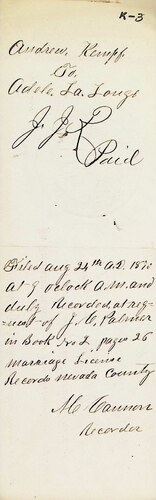 K-3
Andrew Kempf
To
Adele La Longs
J. J. R.
Paid
Filed Aug 24th A.D. 187
at 9 oclock A.M. and
duly Recorded at req=
=uest of J. C. Palmer
in Book No 2 page 26
Marriage License
Records Nevada County
M Cannon
Recorder